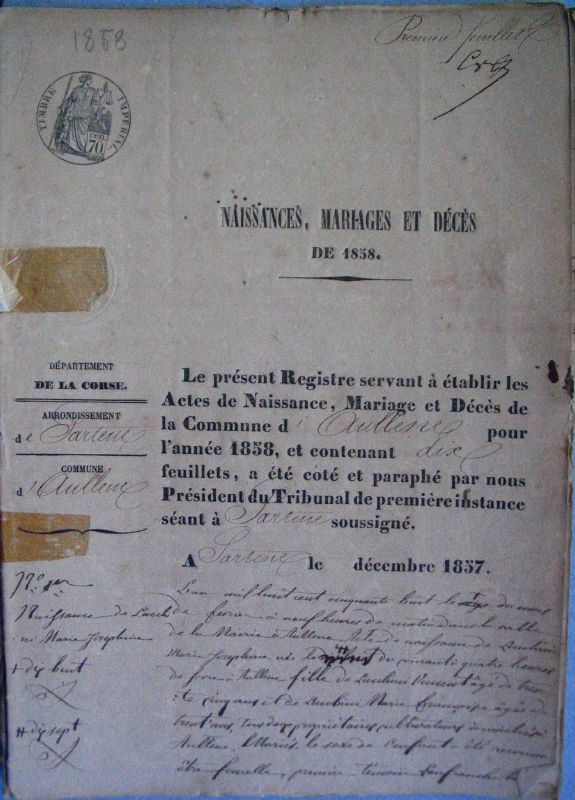 1858
Premier feuillet
TIMBRE IMPÉRIAL
70
NAISSANCES, MARIAGES ET DÉCÈS
DE 1858.
DÉPARTEMENT
DE LA CORSE.
ARRONDISSEMENT
de Sartene
COMMUNE
d'Aullene
Le présent Registre servant à établir les
Actes de Naissance, Mariage et Décès de
la Commune d'Aullene pour
l'année 1858, et contenant dix
feuillets, a été coté et paraphé par nous
Président du Tribunal de première instance
séant à Sartene soussigné.
A Sartene le décembre 1857.
N° 1er
Naissance de
Marie Josephine
+ dix huit
# dix sept
L'an mil huit cent cinquante huit le du mois
de à neuf heures du matin dans la salle
de la Mairie à Aullene Acte de naissance de
Marie Josephine née le du courant à quatre heures
de à Aullene fille de Vincent âgé de
cinq ans et de Marie âgée de
trente ans, tous deux propriétaires cultivateurs
Aullene, Mariés, le sexe de l'enfant a été reconnu
être femelle, premier témoin